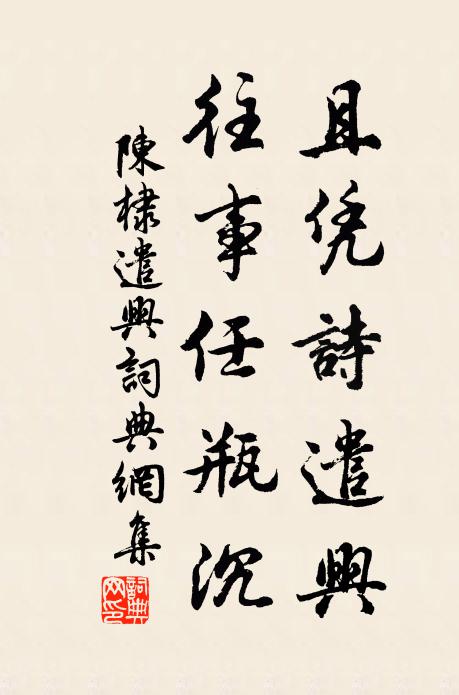 且凭詩遣興
往事任瓶沉
陳棣遣興詞典網集
詞典
网印